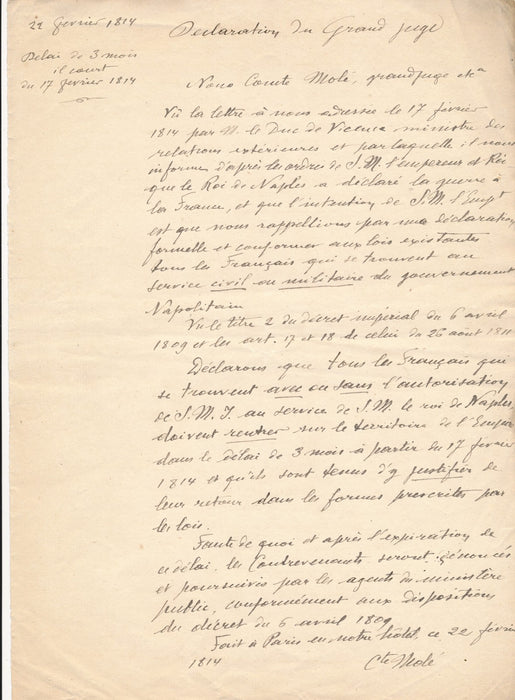 22 février 1814
Déclaration du Grand juge
Délai de 3 mois
il court
du 17 février 1814
Nous Comte Molé, grand juge etca
Vu la lettre à nous adressée le 17 février
1814 par M. le Duc de Vicence ministre des
relations extérieures et par laquelle il nous
informe d'après les ordres de S.M. l'empereur et Roi
que le Roi de Naples a déclaré la guerre à
la France, et que l'intention de S.M. l'Empr
est que nous rappellions par une déclaration
formelle et conforme aux lois existantes
tous les Français qui se trouvent au
service civil ou militaire du gouvernement
Napolitain
Vu le titre 2 du décret impérial du 6 avril
1809 et les art. 17 et 18 de celui du 26 août 1811
Déclarons que tous les Français qui
se trouvent avec ou sans l'autorisation
de S.M.I. au service de S.M. le roi de Naples,
doivent rentrer sur le territoire de l'Empire
dans le délai de 3 mois à partir du 17 février
1814 et qu'ils sont tenus d'y justifier de
leur retour dans les formes prescrites par
les lois.
Faute de quoi et après l'expiration de
ce délai, les Contrevenants seront dénoncés
et poursuivis par les agents du ministère
public, conformément aux dispositions
du décret du 6 avril 1809
Fait à Paris en notre hôtel, ce 22 février
1814
Cte Molé